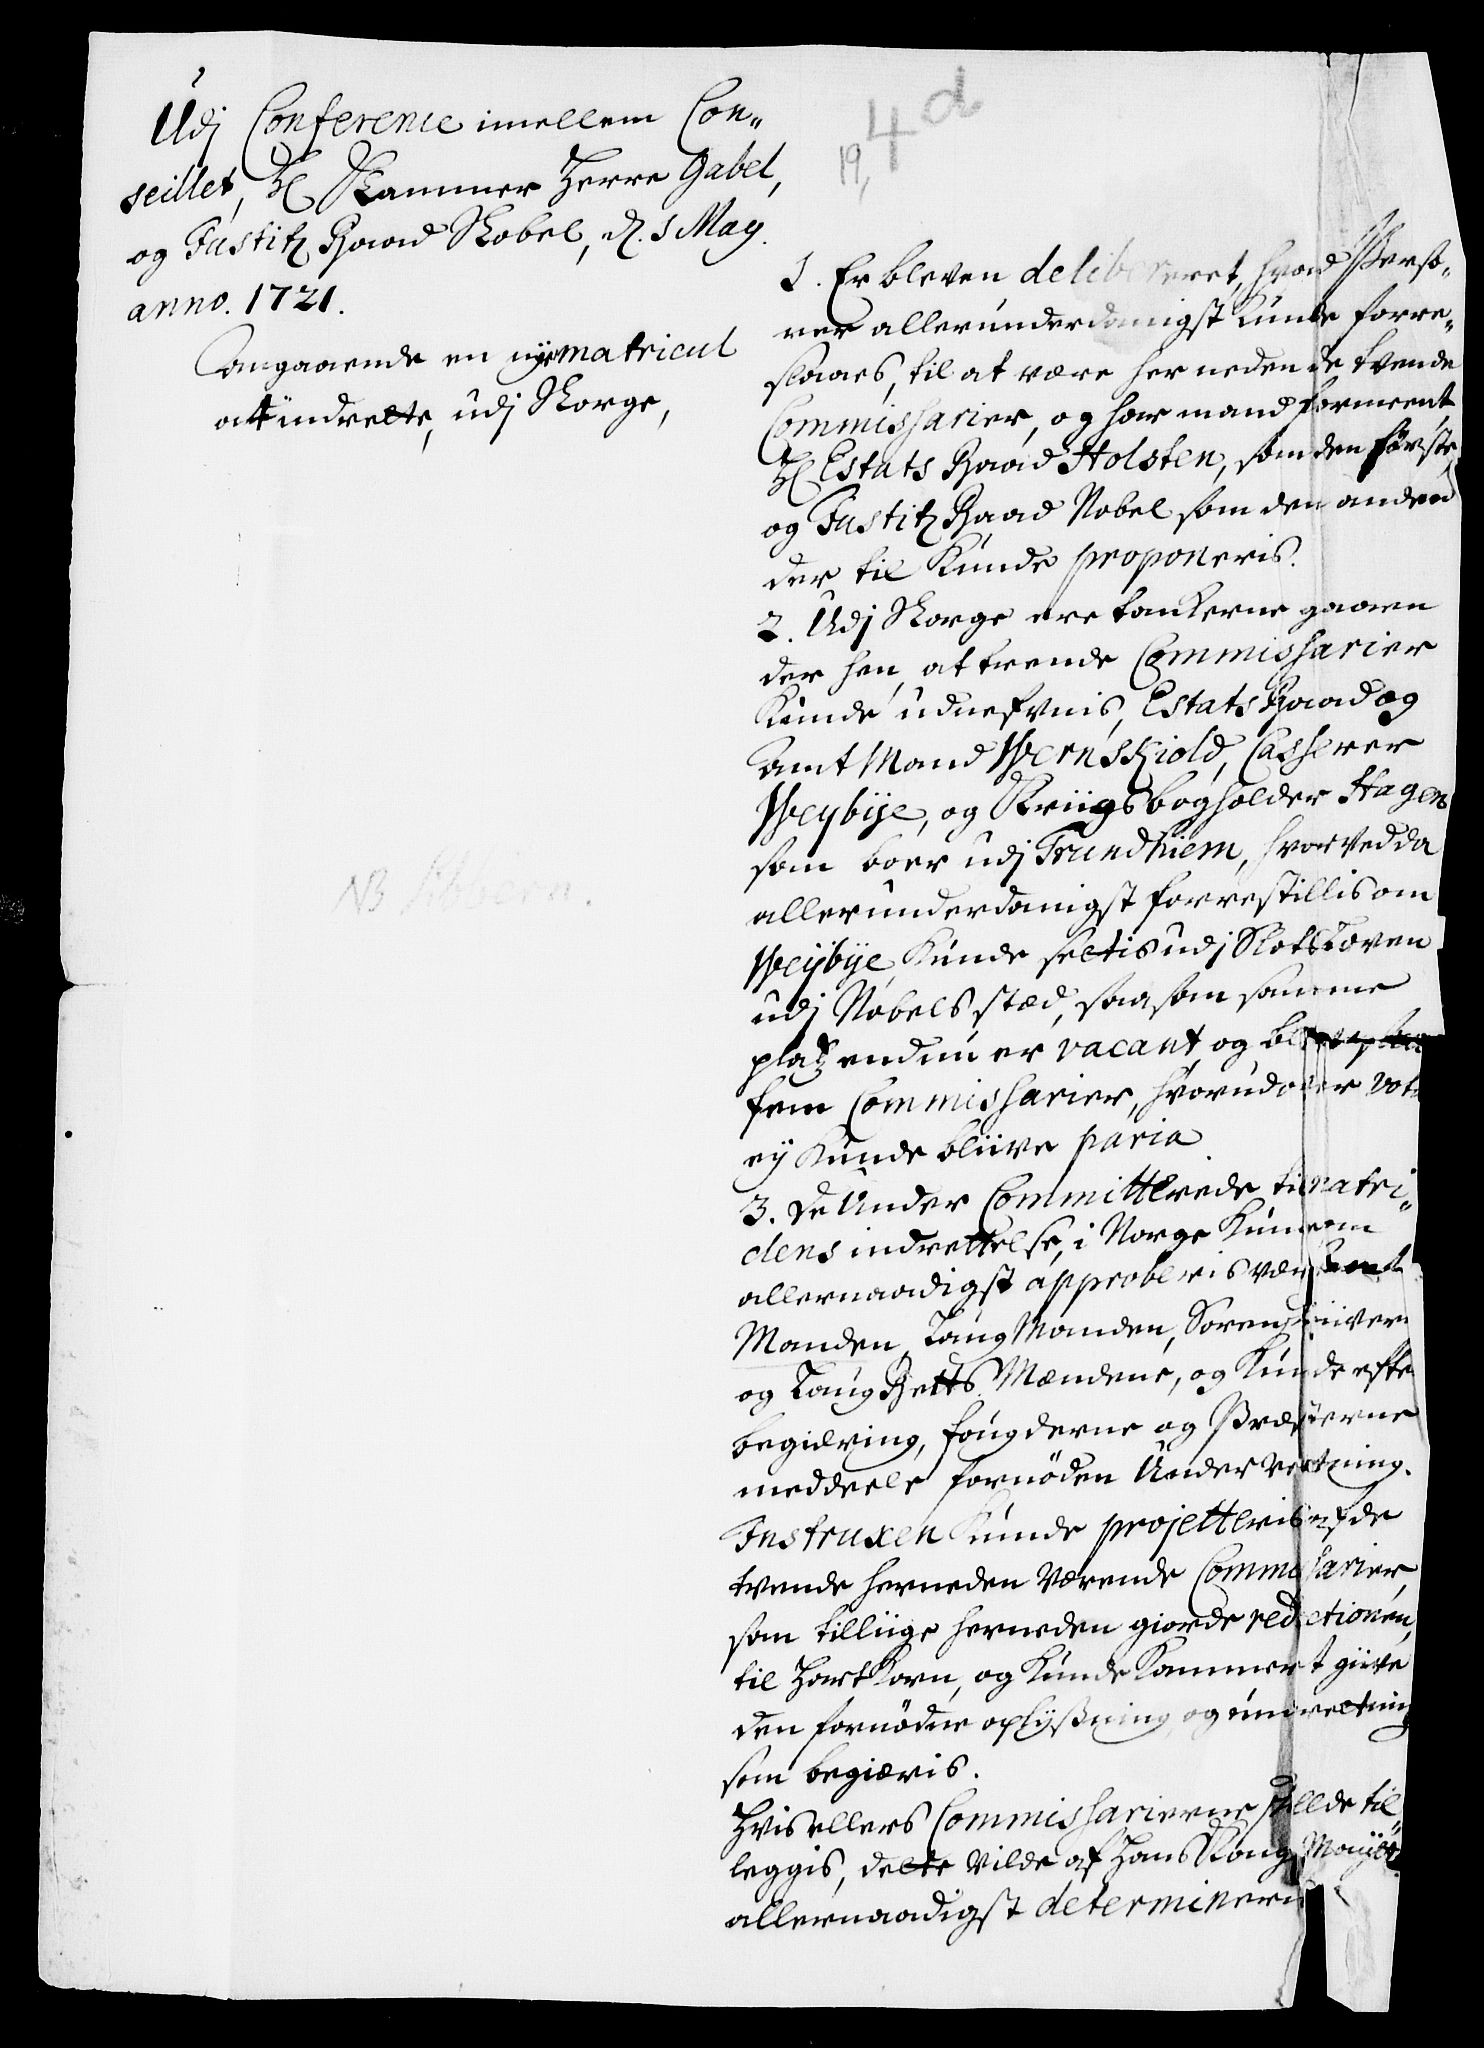 Udj Conference imellem Con„
seillet, H Kammer Herre Gabel,
og Justitz Raad Nobel, d. 1 May.
anno. 1721.
Angaaende en nye matricul
att indrette, udj Norge,
19, 4 d
NB
1. Er bleven delibereret, hvad Perso„
ner allerunderdanigst kunde forre„
slaaes, til at være her neden de tvende
Commissarier, og har mand formeent
H Estats Raad Holsten, som den første,
og Justitz Raad Nobel som den anden
der til kunde proponeris.
2. Udj Norge ere tankerne gaaen
der hen, at trende Commissarier
kunde udnefnis, Estats Raad og
Amt Mand Wernskiold, Casserer
Weybye, og Kriigsbogholder Hagen
som boer udj Trundhiem, hvorved da
allerunderdanigst forrestillis om
Weijbye kunde settis udj Slotsloven
udj Nobels stæd, saasom samme
platz endnu er vacant, og
fem Commissarier, hvorudover vota
ej kunde bliive paria
3. De Under Committerede til matri„
clens indrettelse, i Norge kunde om
allernaadigst approberis være Amt
Manden, Laug Manden, Sorenskriiveren
og Laug Retts Mændene, og kunde efter
begiæring, fougderne og Præsterne
meddeele fornøden Underretning.
Instruxen kunde projetteris af de
tvende herneden værende Commissarier,
som tilliige herneden giorde reductionen,
til Hartkorn, og kunde Kammeret giive
den fornødne oplysning og underretning
som begiæris.
Hvis ellers Commissarierne skulde til„
leggis, dette vilde af Hans Kong Mayst
allernaadigst determineris